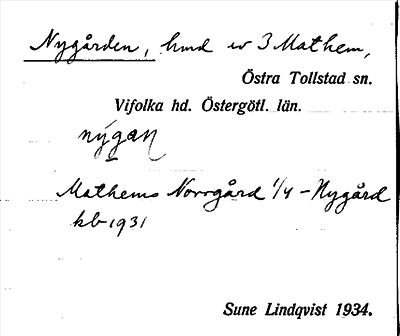 Nygården, hmd w 3 Mathem,
Östra Tollstad sn.
Vifolka hd. Östergötl. län.
nýgan
Mathems Norrgård 1/4 – Nygård
kb 1931
Sune Lindqvist 1934.